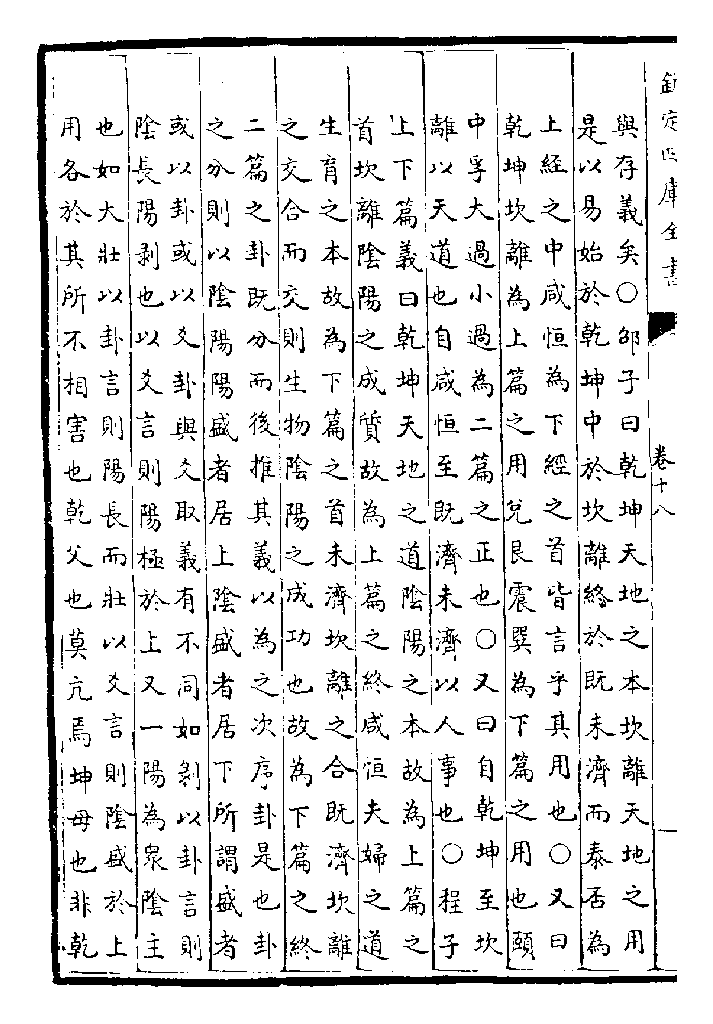 欽定四庫全書
卷十八
一
與存義矣○邵子曰乾坤天地之本坎離天地之用
是以易始於乾坤中於坎離終於既未濟而泰否為
上經之中咸恒為下經之首皆言乎其用也○又曰
乾坤坎離為上篇之用兌艮震巽為下篇之用也頤
中孚大過小過為二篇之正也○又曰自乾坤至坎
離以天道也自咸恒至既濟未濟以人事也○程子
上下篇義曰乾坤天地之道陰陽之本故為上篇之
首坎離陰陽之成質故為上篇之終咸恒夫婦之道
生育之本故為下篇之首未濟坎離之合既濟坎離
之交合而交則生物陰陽之成功也故為下篇之終
二篇之卦既分而後推其義以為之次序卦是也卦
之分則以陰陽陽盛者居上陰盛者居下所謂盛者
或以卦或以爻卦與爻取義有不同如剝以卦言則
陰長陽剥也以爻言則陽極於上又一陽為衆陰主
也如大壯以卦言則陽長而壯以爻言則陰盛於上
用各於其所不相害也乾父也莫亢焉坤母也非乾